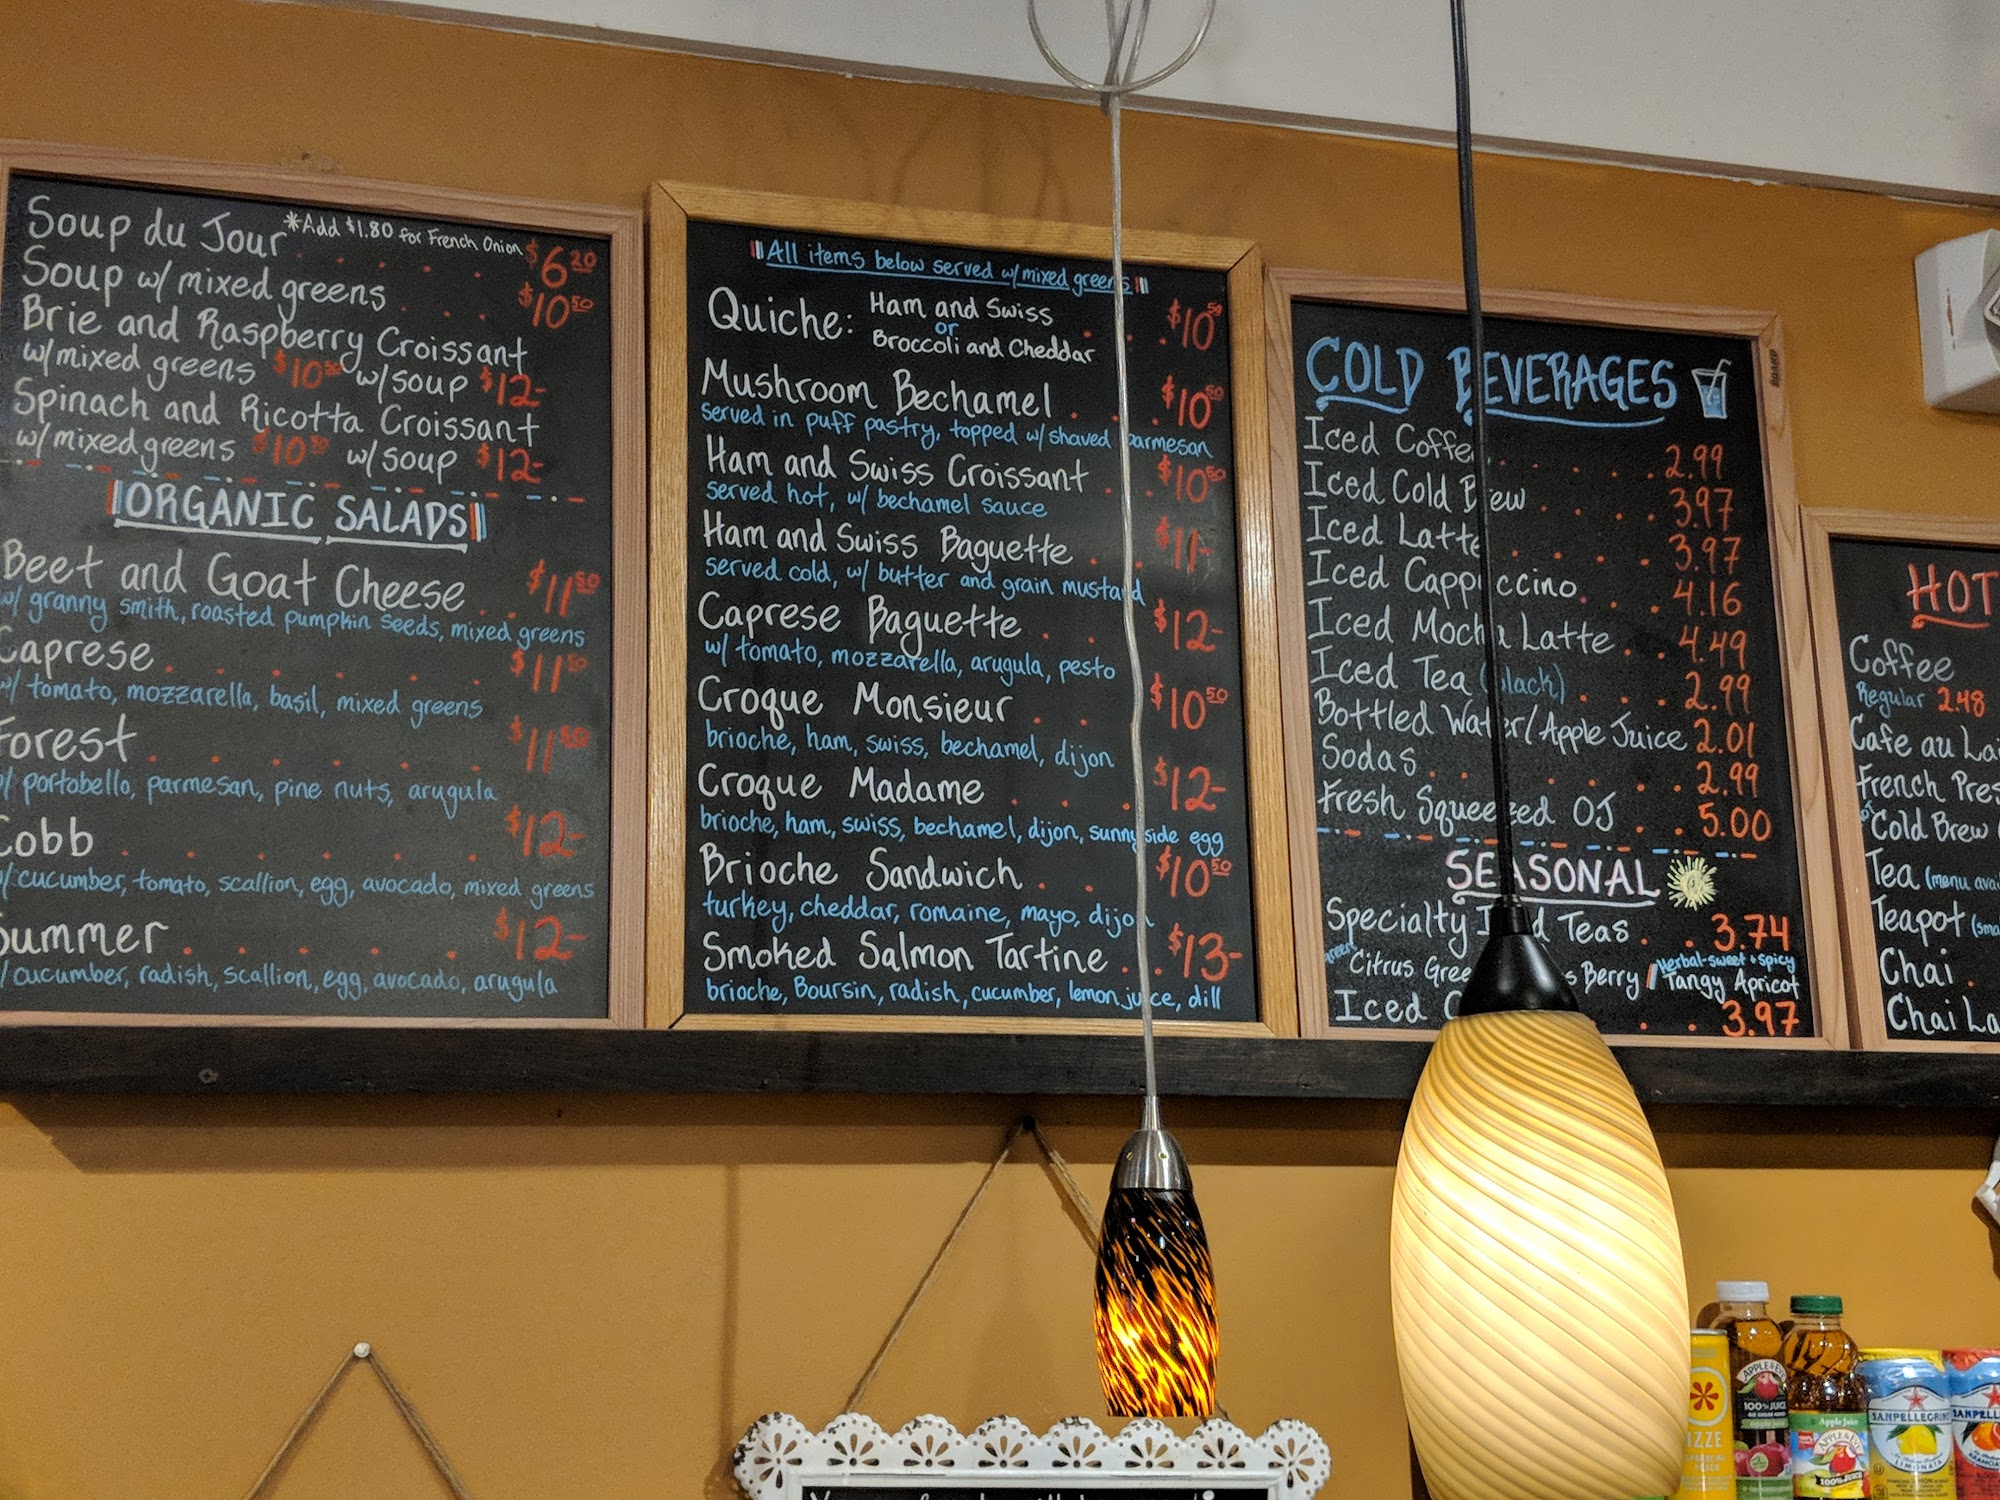 Soup du Jour *Add $1.80 for French Onion $6.20
Soup w/ mixed greens $10.50
Brie and Raspberry Croissant
w/mixed greens $10.50 w/soup $12-
Spinach and Ricotta Croissant
w/mixed greens $10.50 w/soup $12-
ORGANIC SALADS
Beet and Goat Cheese $11.50
w/ granny smith, roasted pumpkin seeds, mixed greens
Caprese $11.50
w/ tomato, mozzarella, basil, mixed greens
Forest $11.50
w/ portobello, parmesan, pine nuts, arugula
Cobb $12-
w/ cucumber, tomato, scallion, egg, avocado, mixed greens
Summer $12-
w/ cucumber, radish, scallion, egg, avocado, arugula
All items below served w/mixed greens
Quiche: Ham and Swiss
or
Broccoli and Cheddar $10.50
Mushroom Bechamel $10.50
served in puff pastry, topped w/ shaved parmesan
Ham and Swiss Croissant $10.50
served hot, w/ bechamel sauce
Ham and Swiss Baguette $11-
served cold, w/ butter and grain mustard
Caprese Baguette $12-
w/ tomato, mozzarella, arugula, pesto
Croque Monsieur $10.50
brioche, ham, swiss, bechamel, dijon
Croque Madame $12-
brioche, ham, swiss, bechamel, dijon, sunny side egg
Brioche Sandwich $10.50
turkey, cheddar, romaine, mayo, dijon
Smoked Salmon Tartine $13-
brioche, Boursin, radish, cucumber, lemon juice, dill
COLD BEVERAGES
Iced Coffee 2.99
Iced Cold Brew 3.97
Iced Latte 3.97
Iced Cappuccino 4.16
Iced Mocha Latte 4.49
Iced Tea (black) 2.99
Bottled Water/Apple Juice 2.01
Sodas 2.99
Fresh Squeezed OJ 5.00
SEASONAL
Specialty Iced Teas 3.74
green Herbal-sweet + spicy
Citrus Green Berry Tangy Apricot
Iced 3.97
BOARD
HOT
Coffee
Regular 2.48
Cafe au
French
Cold Brew
Tea (menu
Teapot
Chai
Chai
APPLE &
100% JUICE
Apple Juice
100% JUICE
SANPELLEGRINO
LIMONATA